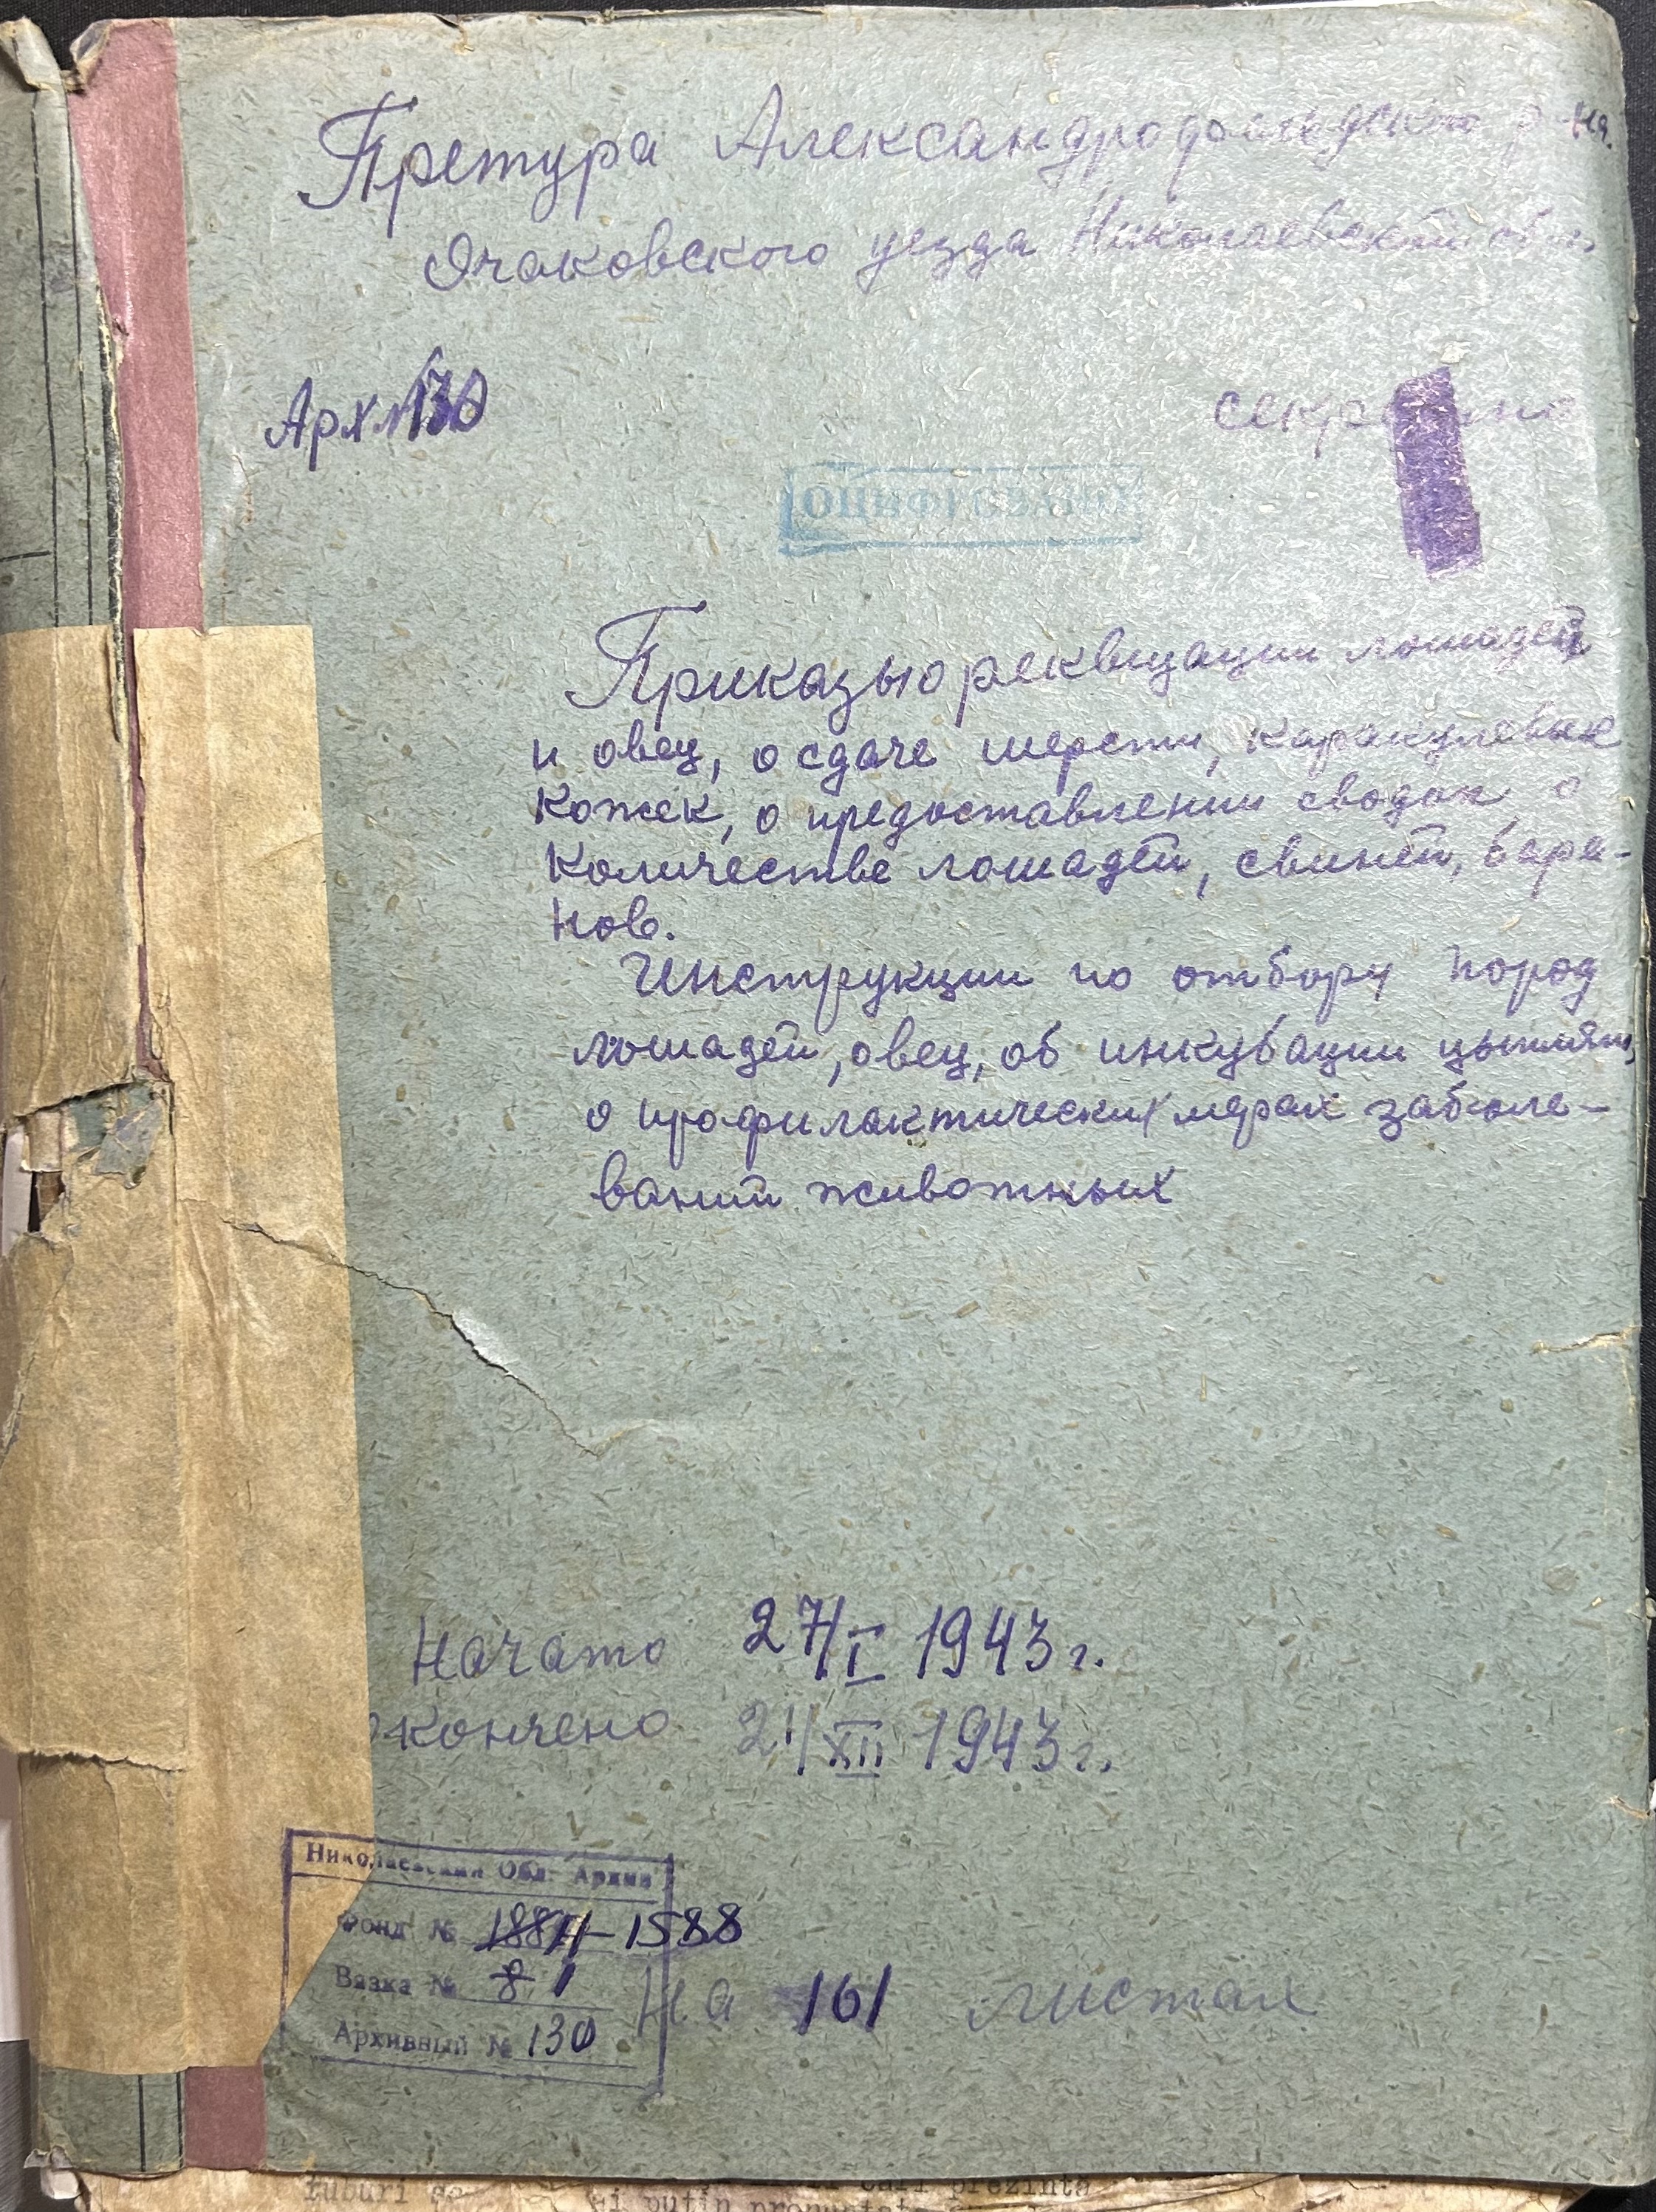 Претура Александродольдского р-на.
Очаковского уезда Николаевской обл.
Арх №130
секретно
Приказы о реквизации лошадей
и овец, о сдаче шерсти, каракулевых
кожек, о предоставлении сводок о
количестве лошадей, свиней, бара-
нов.
Инструкции по отбору пород
лошадей, овец, об инкубации цыплят,
о профилактических мерах заболе-
ваний животных
Начато 27/I 1943 г.
Окончено 21/XII 1943 г.
Николаевский Обл. Архив
Фонд № 1884-1588
Вязка № 8 1
Архивный № 130
На 161 листах
iuburi
cari prezinta
si putin